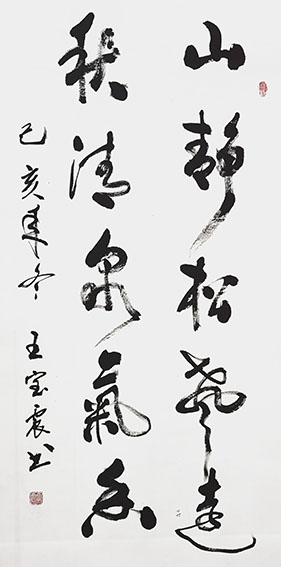 山静松聲遠
秋清泉氣香
己亥年冬 王宝震书